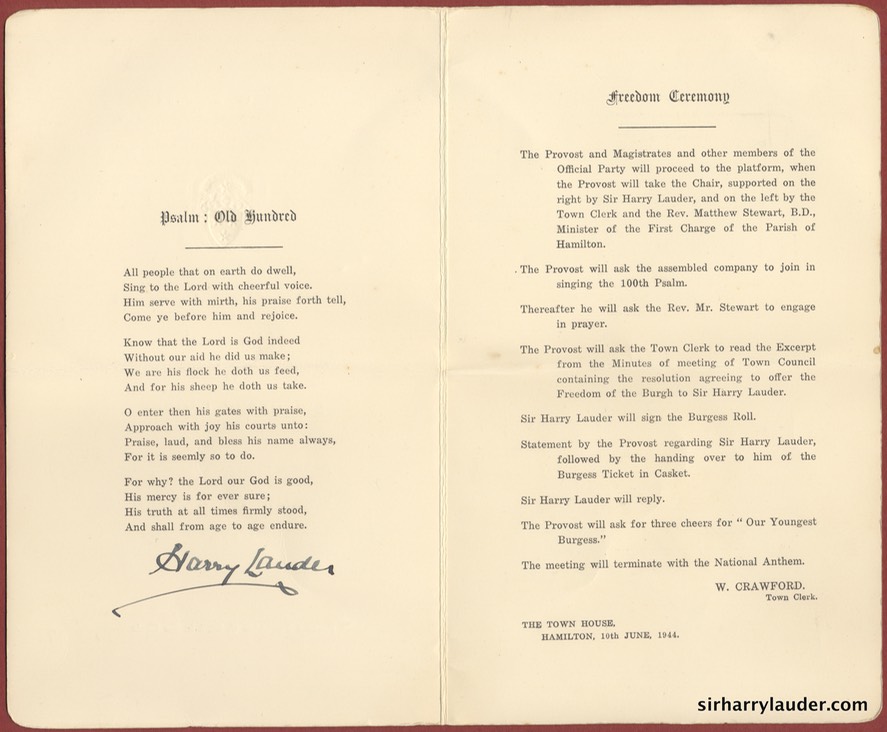 Psalm : Old Hundred
All people that on earth do dwell,
Sing to the Lord with cheerful voice.
Him serve with mirth, his praise forth tell,
Come ye before him and rejoice.
Know that the Lord is God indeed
Without our aid he did us make;
We are his flock he doth us feed,
And for his sheep he doth us take.
O enter then his gates with praise,
Approach with joy his courts unto:
Praise, laud, and bless his name always,
For it is seemly so to do.
For why? the Lord our God is good,
His mercy is for ever sure;
His truth at all times firmly stood,
And shall from age to age endure.
Harry Lauder
Freedom Ceremony
The Provost and Magistrates and other members of the
Official Party will proceed to the platform, when
the Provost will take the Chair, supported on the
right by Sir Harry Lauder, and on the left by the
Town Clerk and the Rev. Matthew Stewart, B.D.,
Minister of the First Charge of the Parish of
Hamilton.
The Provost will ask the assembled company to join in
singing the 100th Psalm.
Thereafter he will ask the Rev. Mr. Stewart to engage
in prayer.
The Provost will ask the Town Clerk to read the Excerpt
from the Minutes of meeting of Town Council
containing the resolution agreeing to offer the
Freedom of the Burgh to Sir Harry Lauder.
Sir Harry Lauder will sign the Burgess Roll.
Statement by the Provost regarding Sir Harry Lauder,
followed by the handing over to him of the
Burgess Ticket in Casket.
Sir Harry Lauder will reply.
The Provost will ask for three cheers for " Our Youngest
Burgess."
The meeting will terminate with the National Anthem.
W. CRAWFORD.
Town Clerk.
THE TOWN HOUSE,
HAMILTON, 10th JUNE, 1944.
sirharrylauder.com